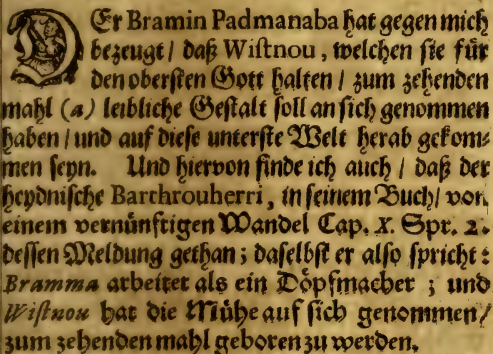 DEr Bramin Padmanaba hat gegen mich
bezeugt / daß Wistnou, welchen sie für
den obersten Gott halten / zum zehenden
mahl (a) leibliche Gestalt soll an sich genommen
haben / und auf diese unterste Welt herab gekom-
men seyn. Und hiervon finde ich auch / daß der
heydnische Barthrouherri, in seinem Buch / von
einem vernünftigen Wandel Cap. X. Spr. 2.
dessen Meldung gethan; daselbst er also spricht:
Bramma arbeitet als ein Döpfmacher; und
Wistnou hat die Mühe auf sich genommen /
zum zehenden mahl geboren zu werden.